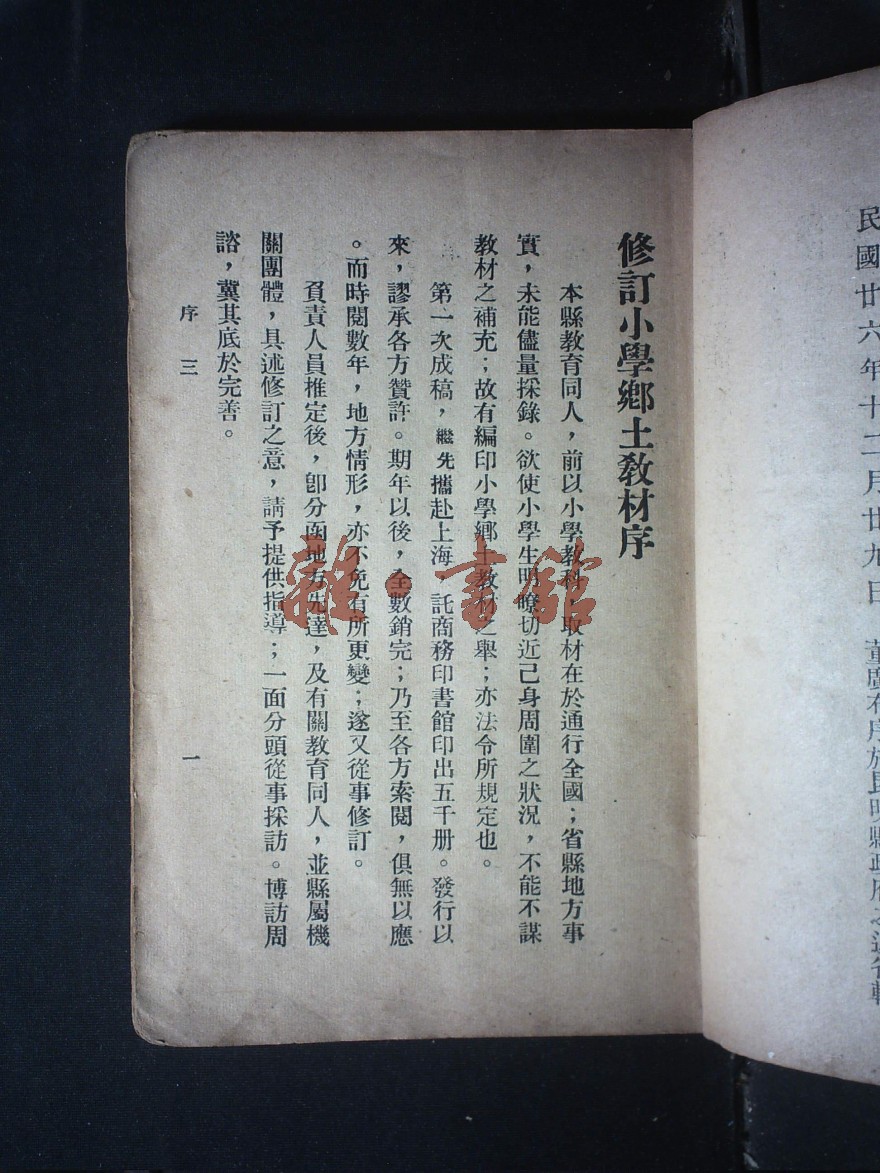 民國廿六年十二月廿九日　董廣布序於昆明縣政府之
修訂小學鄉土教材序
本縣教育同人，前以小學教科，取材在於通行全國；省縣地方事
實，未能儘量採錄。欲使小學生明瞭切近己身周圍之狀況，不能不謀
教材之補充；故有編印小學鄉土教材之舉；亦法令所規定也。
第一次成稿，繼先攜赴上海，託商務印書館印出五千册。發行以
來，謬承各方贊許。期年以後，全數銷完；乃至各方索閱，俱無以應
。而時閱數年，地方情形，亦不免有所更變；遂又從事修訂。
負責人員推定後，卽分函地方先達，及有關教育同人，並縣屬機
關團體，具述修訂之意，請予提供指導；一面分頭從事採訪。博訪周
諮，冀其底於完善。
序　三
一
雜·書館